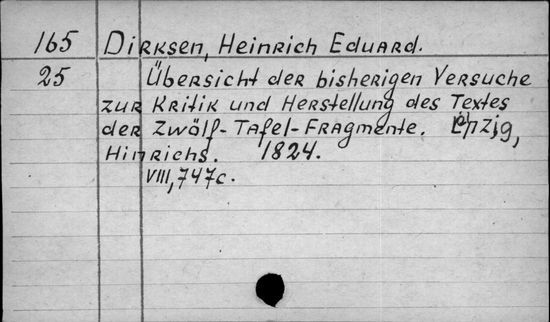 165 Dirksen, Heinrich Eduard.
25 Übersicht der bisherigen Versuche
zur Kritik und Herstellung des Textes
der Zwölf-Tafel-Fragmente. Lpzig,
Hinrichs. 1824.
VIII, 747c.